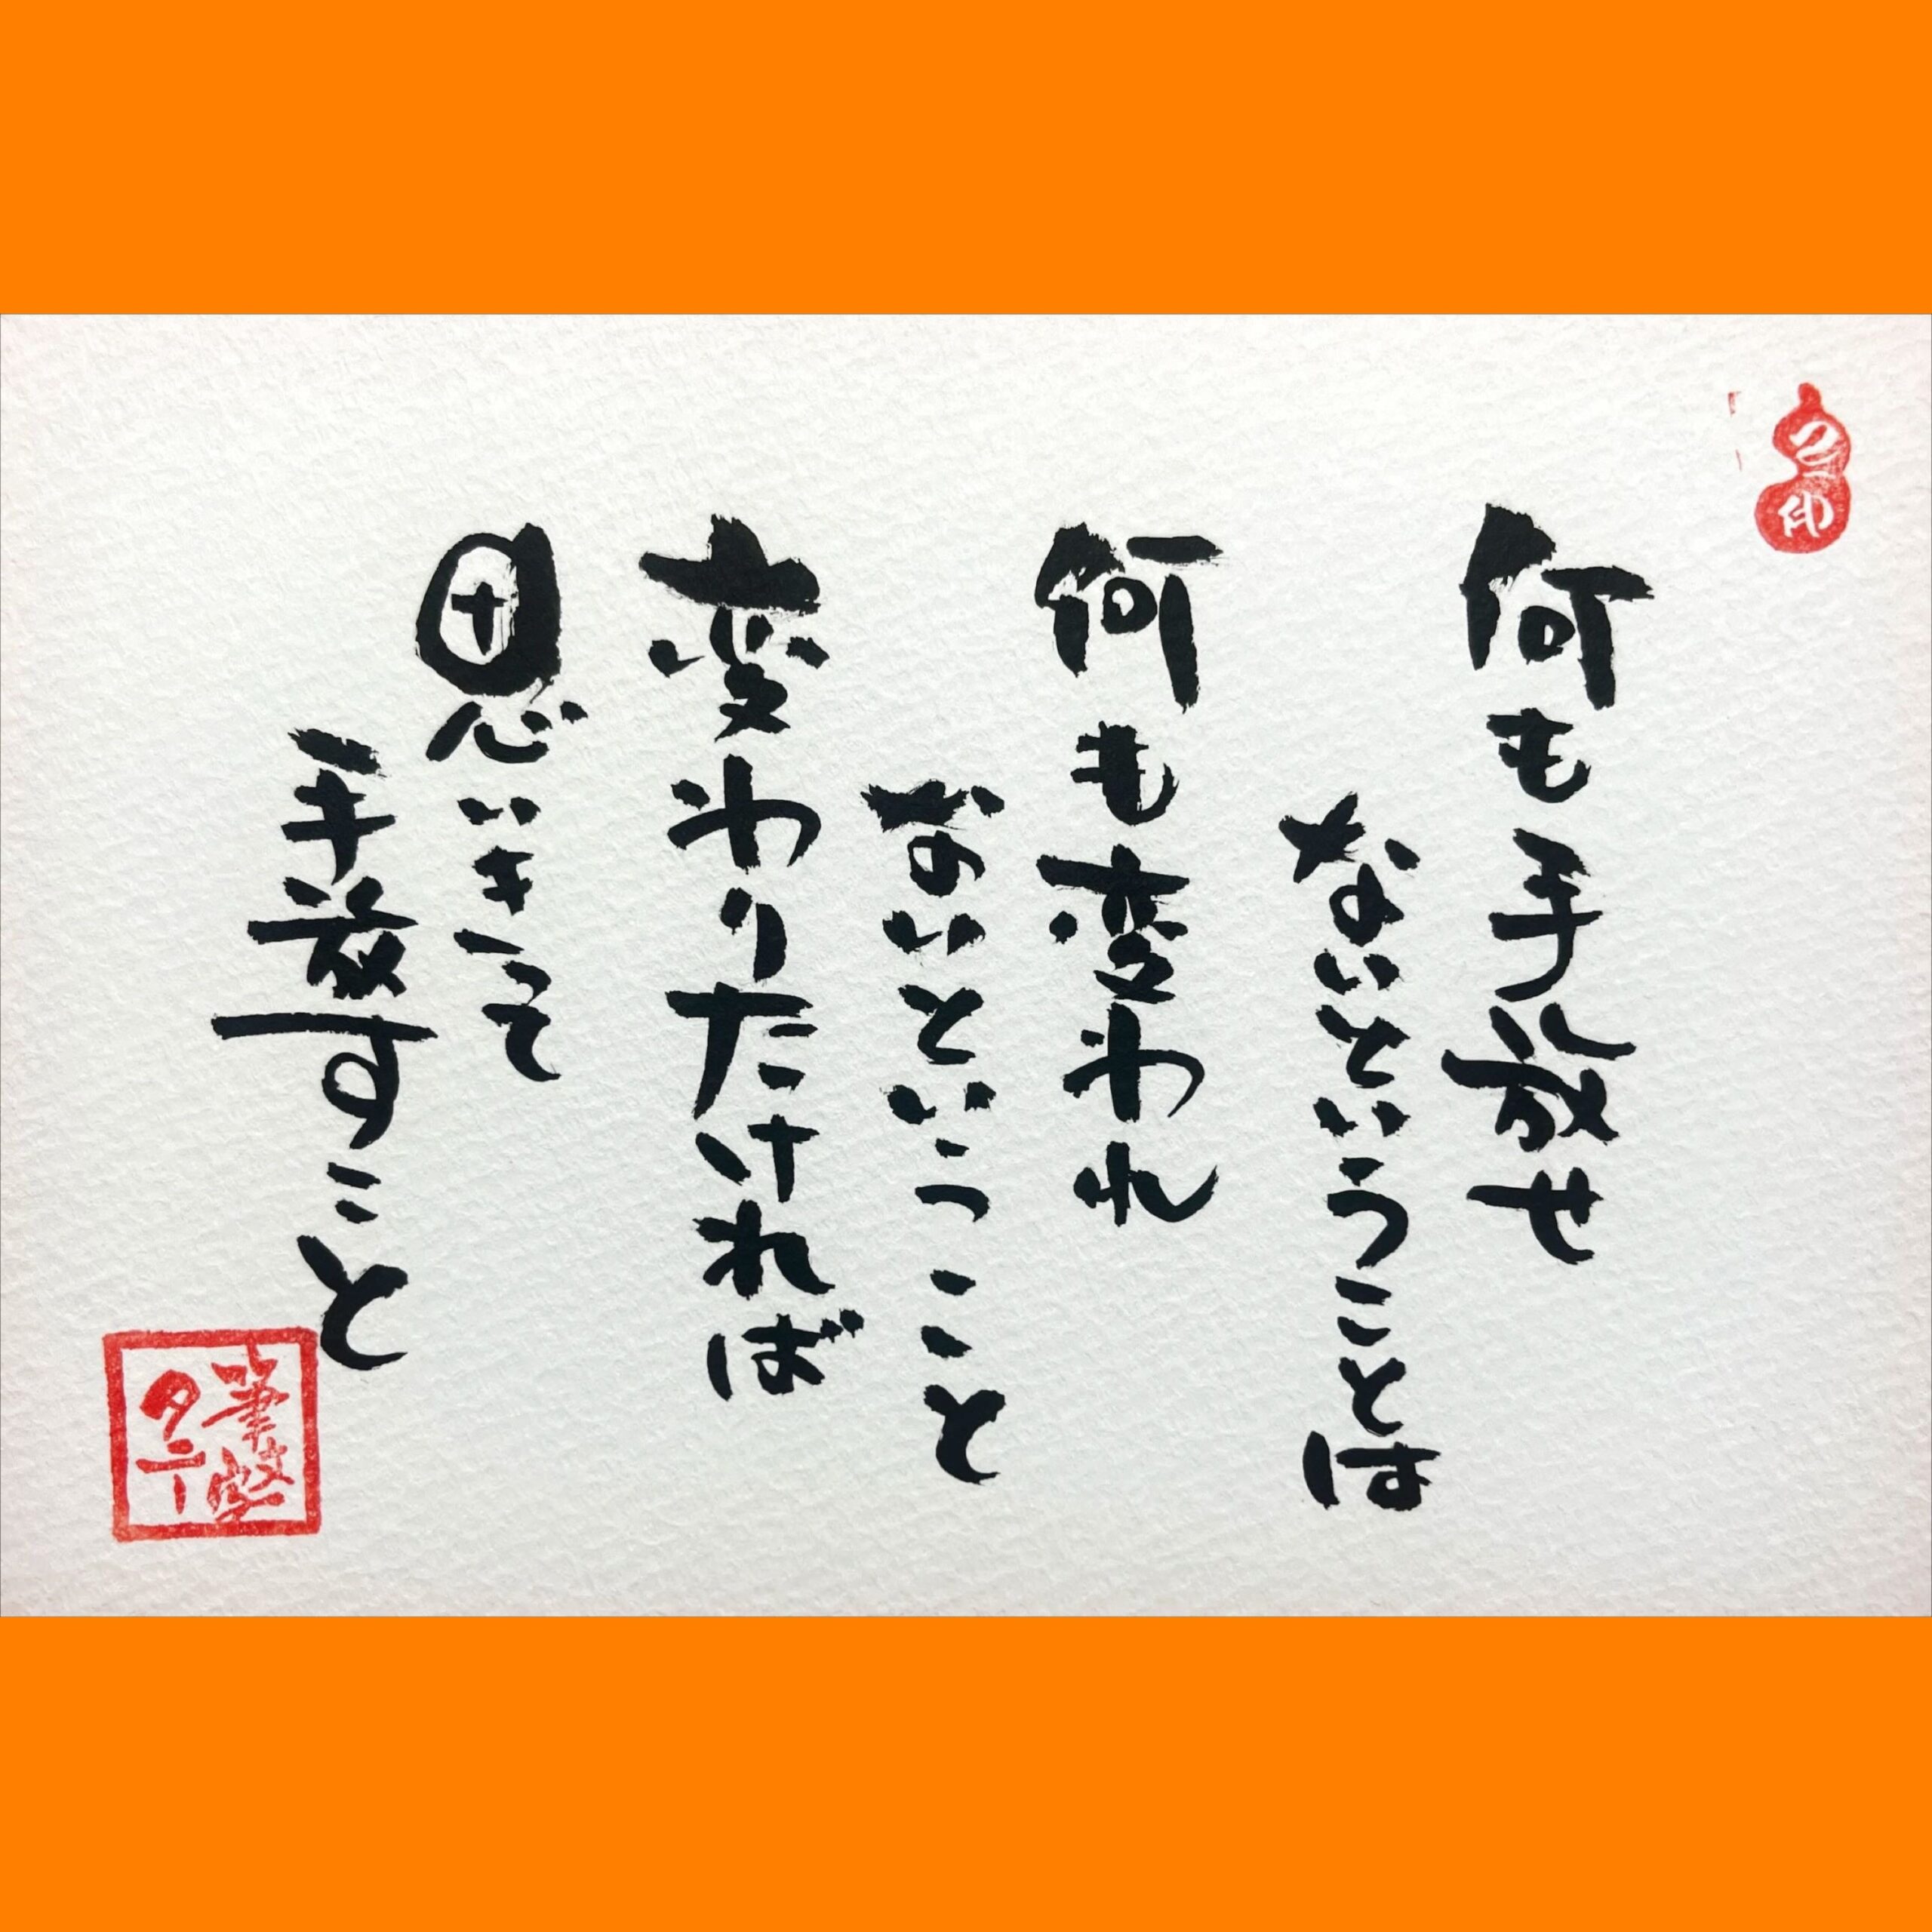 何も手放せ
ないということは
何も変われ
ないということ
変わりたければ
思いきって
手放すこと
筆文字
タニー